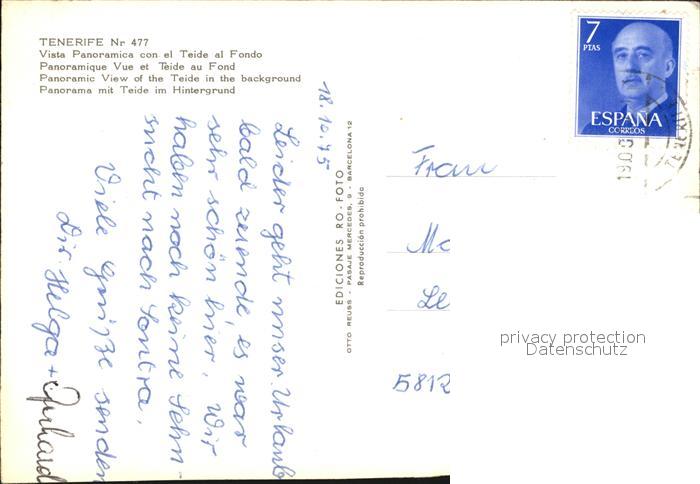 TENERIFE Nr 477
Vista Panoramica con el Teide al Fondo
Panoramique Vue et Teide au Fond
Panoramic View of the Teide in the background
Panorama mit Teide im Hintergrund
18.10.75
Leider geht unser Urlaub
bald zuende, es war
sehr schön hier. Wir
haben noch keine Sehn-
sucht nach Sontra.
Viele Grüße senden
Dir Helga + Gerhard
EDICIONES RO-FOTO
OTTO REUSS - PASAJE MERCEDES, 9 - BARCELONA 12
Reproducción prohibida
7
PTAS
ESPAÑA
CORREOS
TENERIFE
Frau
Ma
Le
5812
privacy protection
Datenschutz